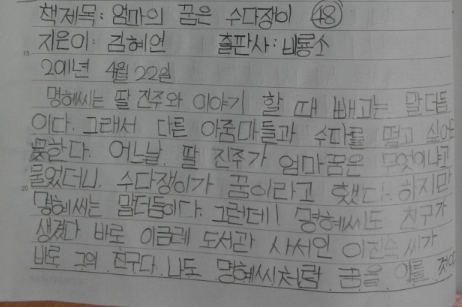 책제목: 엄마의 꿈은 수다쟁이 48
지은이: 김혜연 출판사: 비룡소
2011년 4월 22일
명혜씨는 딸 진주와 이야기 할 때 빼고는 말더듬
이다. 그래서 다른 아줌마들과 수다를 떨고 싶어도
못한다. 어느날 딸 진주가 엄마꿈은 무엇이냐고
물었더니, 수다쟁이가 꿈이라고 했다. 하지만
명혜씨는 말더듬이다. 그런데! 명혜씨도 친구가
생겼다 바로 이금례 도서관 사서인 이진소 씨가
바로 그의 친구다. 나도 명혜씨처럼 꿈을 이룰 것이